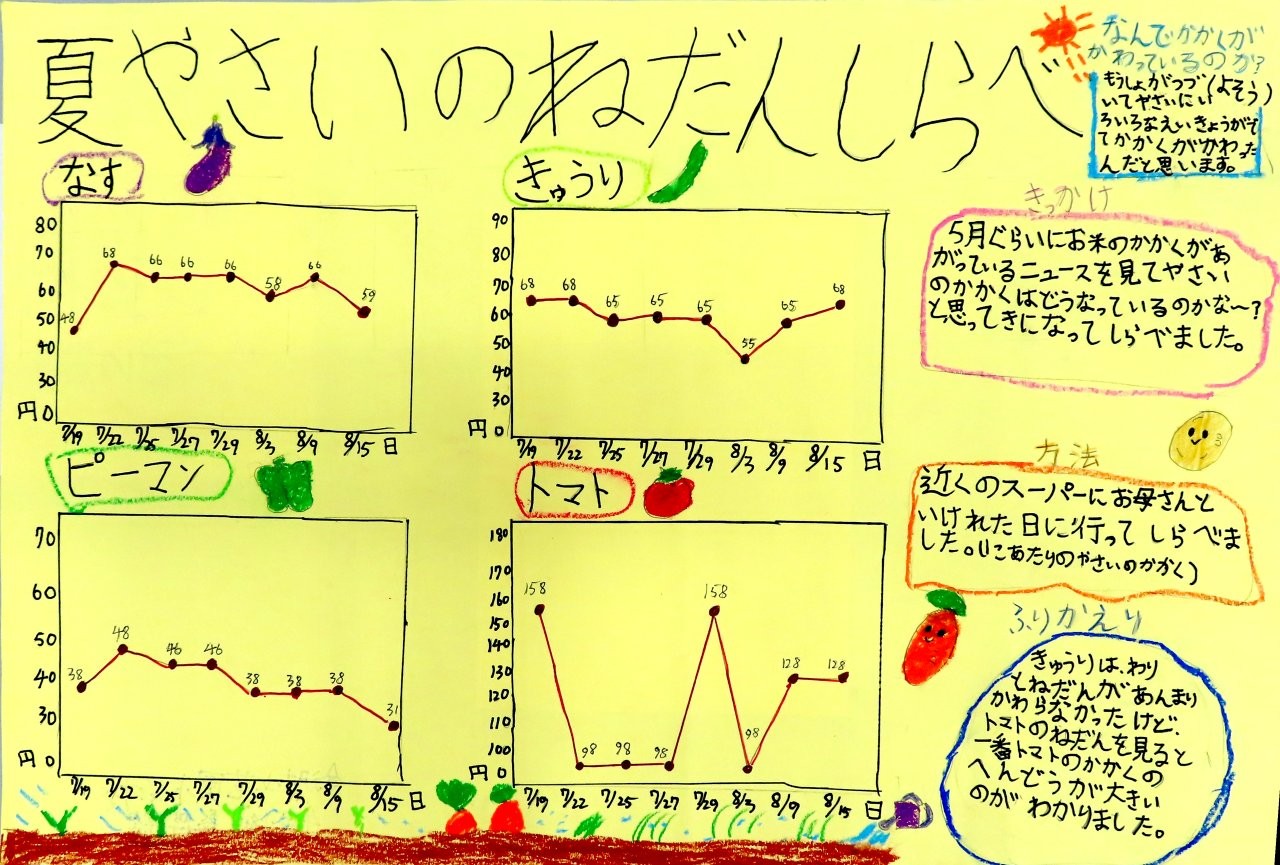 夏やさいのねだんしらべ
なんでかかくが
かわっているのか?
もうしょがつづ(よそう)
いてやさいにい
ろいろなえいきょうがで
てかかくがかわった
んだと思います。
なす
80
70
60
50
40
30
円0
48
68
66
66
66
58
66
59
7/19 7/22 7/25 7/27 7/29 8/3 8/9 8/15 日
きゅうり
90
80
70
60
50
40
30
円0
68
68
65
65
65
55
65
68
7/19 7/22 7/25 7/27 7/29 8/3 8/9 8/15 日
ピーマン
70
60
50
40
30
円0
38
48
46
46
38
38
38
31
7/19 7/22 7/25 7/27 7/29 8/3 8/9 8/15 日
トマト
180
170
160
150
140
130
120
110
100
円0
158
98
98
98
158
98
128
128
7/19 7/22 7/25 7/27 7/29 8/3 8/9 8/15 日
きっかけ
5月ぐらいにお米のかかくがあ
がっているニュースを見てやさい
のかかくはどうなっているのかな〜?
と思ってきになってしらべました。
方法
近くのスーパーにお母さんと
いけれた日に行ってしらべま
した。(1こあたりのやさいのかかく)
ふりかえり
きゅうりは、わり
とねだんがあんまり
かわらなかったけど、
トマトのねだんを見ると
一番トマトのかかくの
へんどうが大きい
のがわかりました。